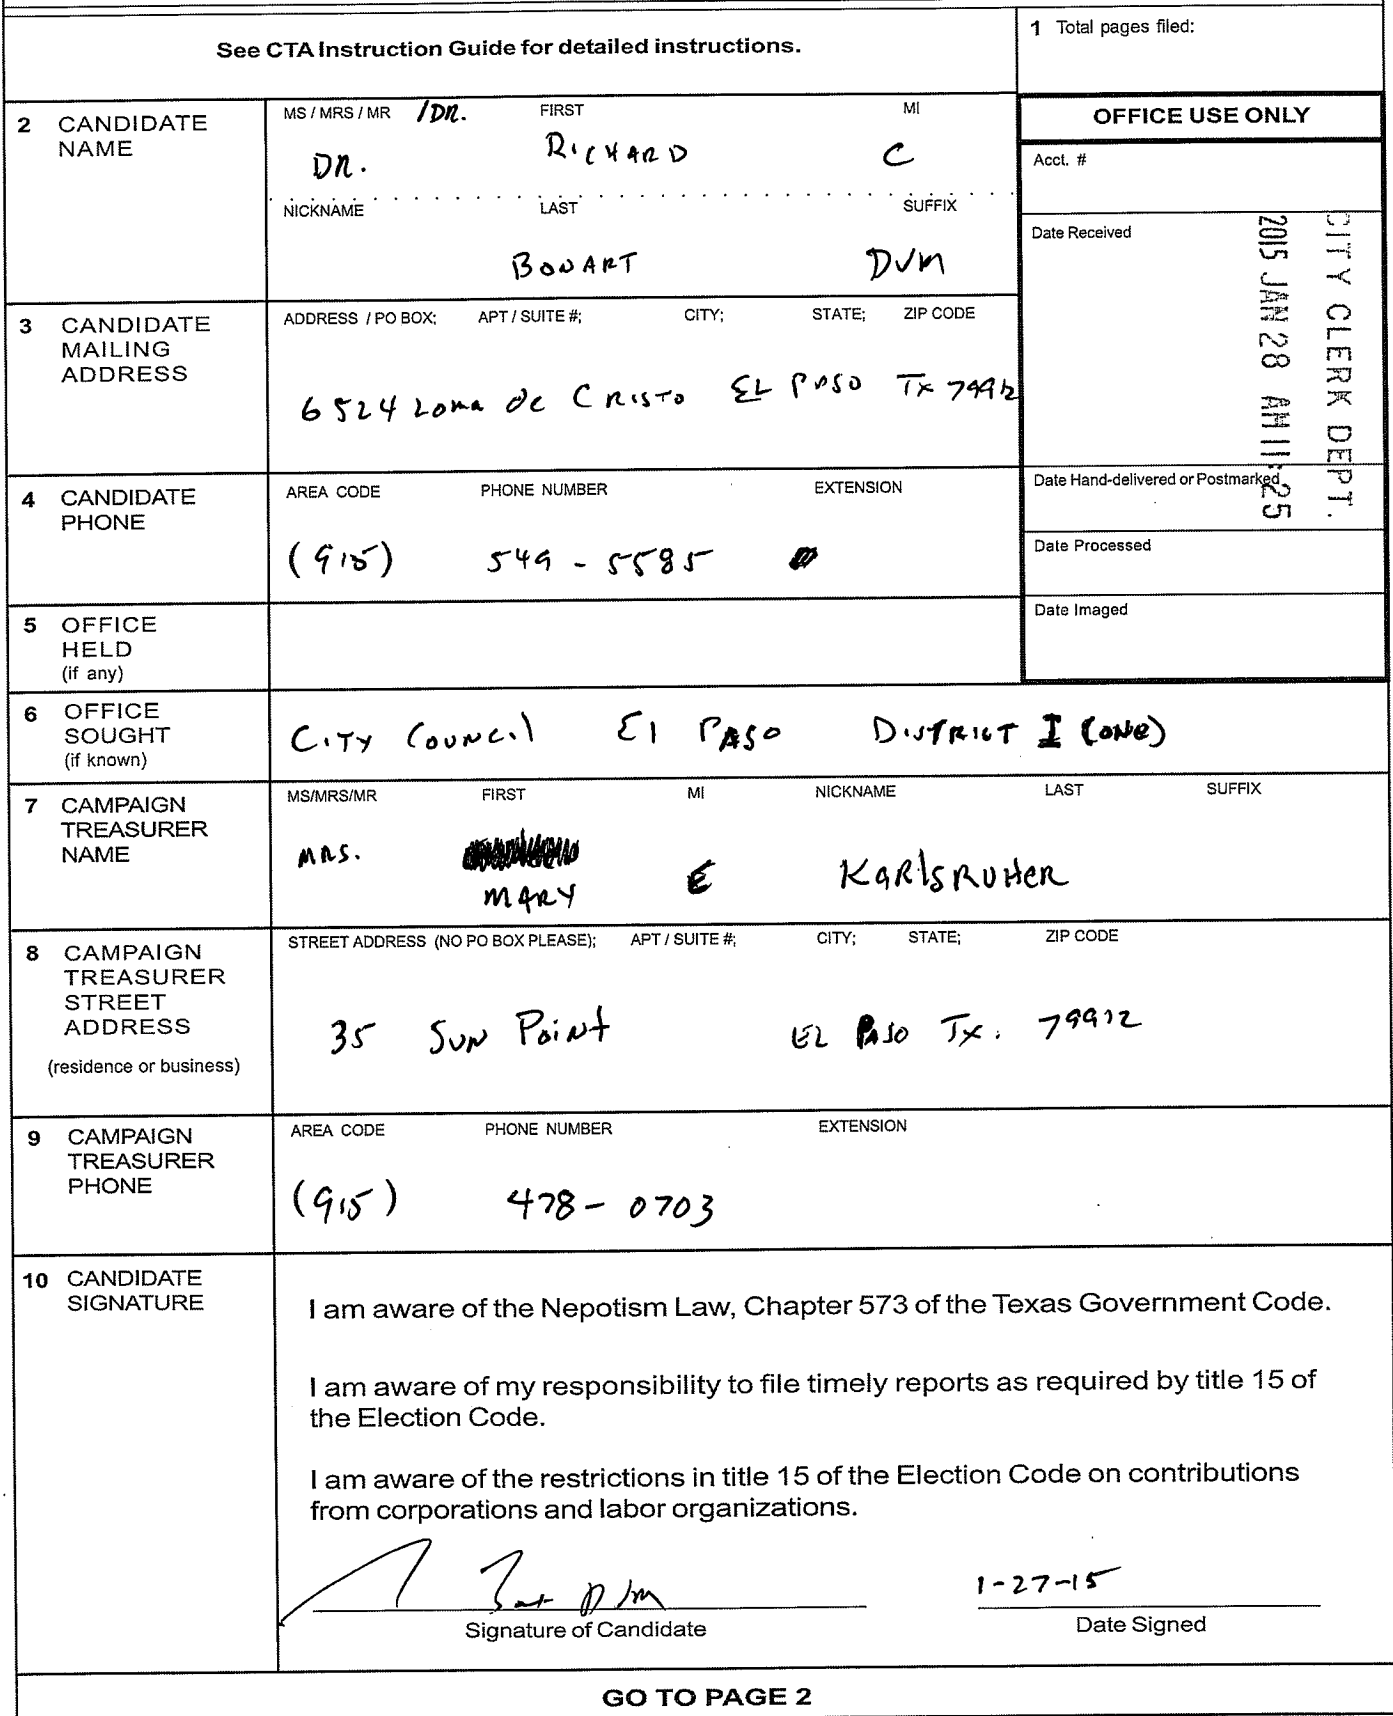 See CTA Instruction Guide for detailed instructions.
1 Total pages filed:
2 CANDIDATE NAME
MS / MRS / MR /DR. FIRST MI
DR. RICHARD C
NICKNAME LAST SUFFIX
BONART DVM
OFFICE USE ONLY
Acct. #
Date Received
CITY CLERK DEPT.
2015 JAN 28 AM 11:25
Date Hand-delivered or Postmarked
Date Processed
Date Imaged
3 CANDIDATE MAILING ADDRESS
ADDRESS / PO BOX; APT / SUITE #; CITY; STATE; ZIP CODE
6524 Loma de Cristo EL PASO TX 79912
4 CANDIDATE PHONE
AREA CODE PHONE NUMBER EXTENSION
(915) 549-5585
5 OFFICE HELD (if any)
6 OFFICE SOUGHT (if known)
City Council El Paso District I (one)
7 CAMPAIGN TREASURER NAME
MS/MRS/MR FIRST MI NICKNAME LAST SUFFIX
MRS. MARY E KARlSRUHER
8 CAMPAIGN TREASURER STREET ADDRESS (residence or business)
STREET ADDRESS (NO PO BOX PLEASE); APT / SUITE #; CITY; STATE; ZIP CODE
35 Sun Point EL PASO Tx. 79912
9 CAMPAIGN TREASURER PHONE
AREA CODE PHONE NUMBER EXTENSION
(915) 478-0703
10 CANDIDATE SIGNATURE
I am aware of the Nepotism Law, Chapter 573 of the Texas Government Code.
I am aware of my responsibility to file timely reports as required by title 15 of
the Election Code.
I am aware of the restrictions in title 15 of the Election Code on contributions
from corporations and labor organizations.
1-27-15
Signature of Candidate Date Signed
GO TO PAGE 2